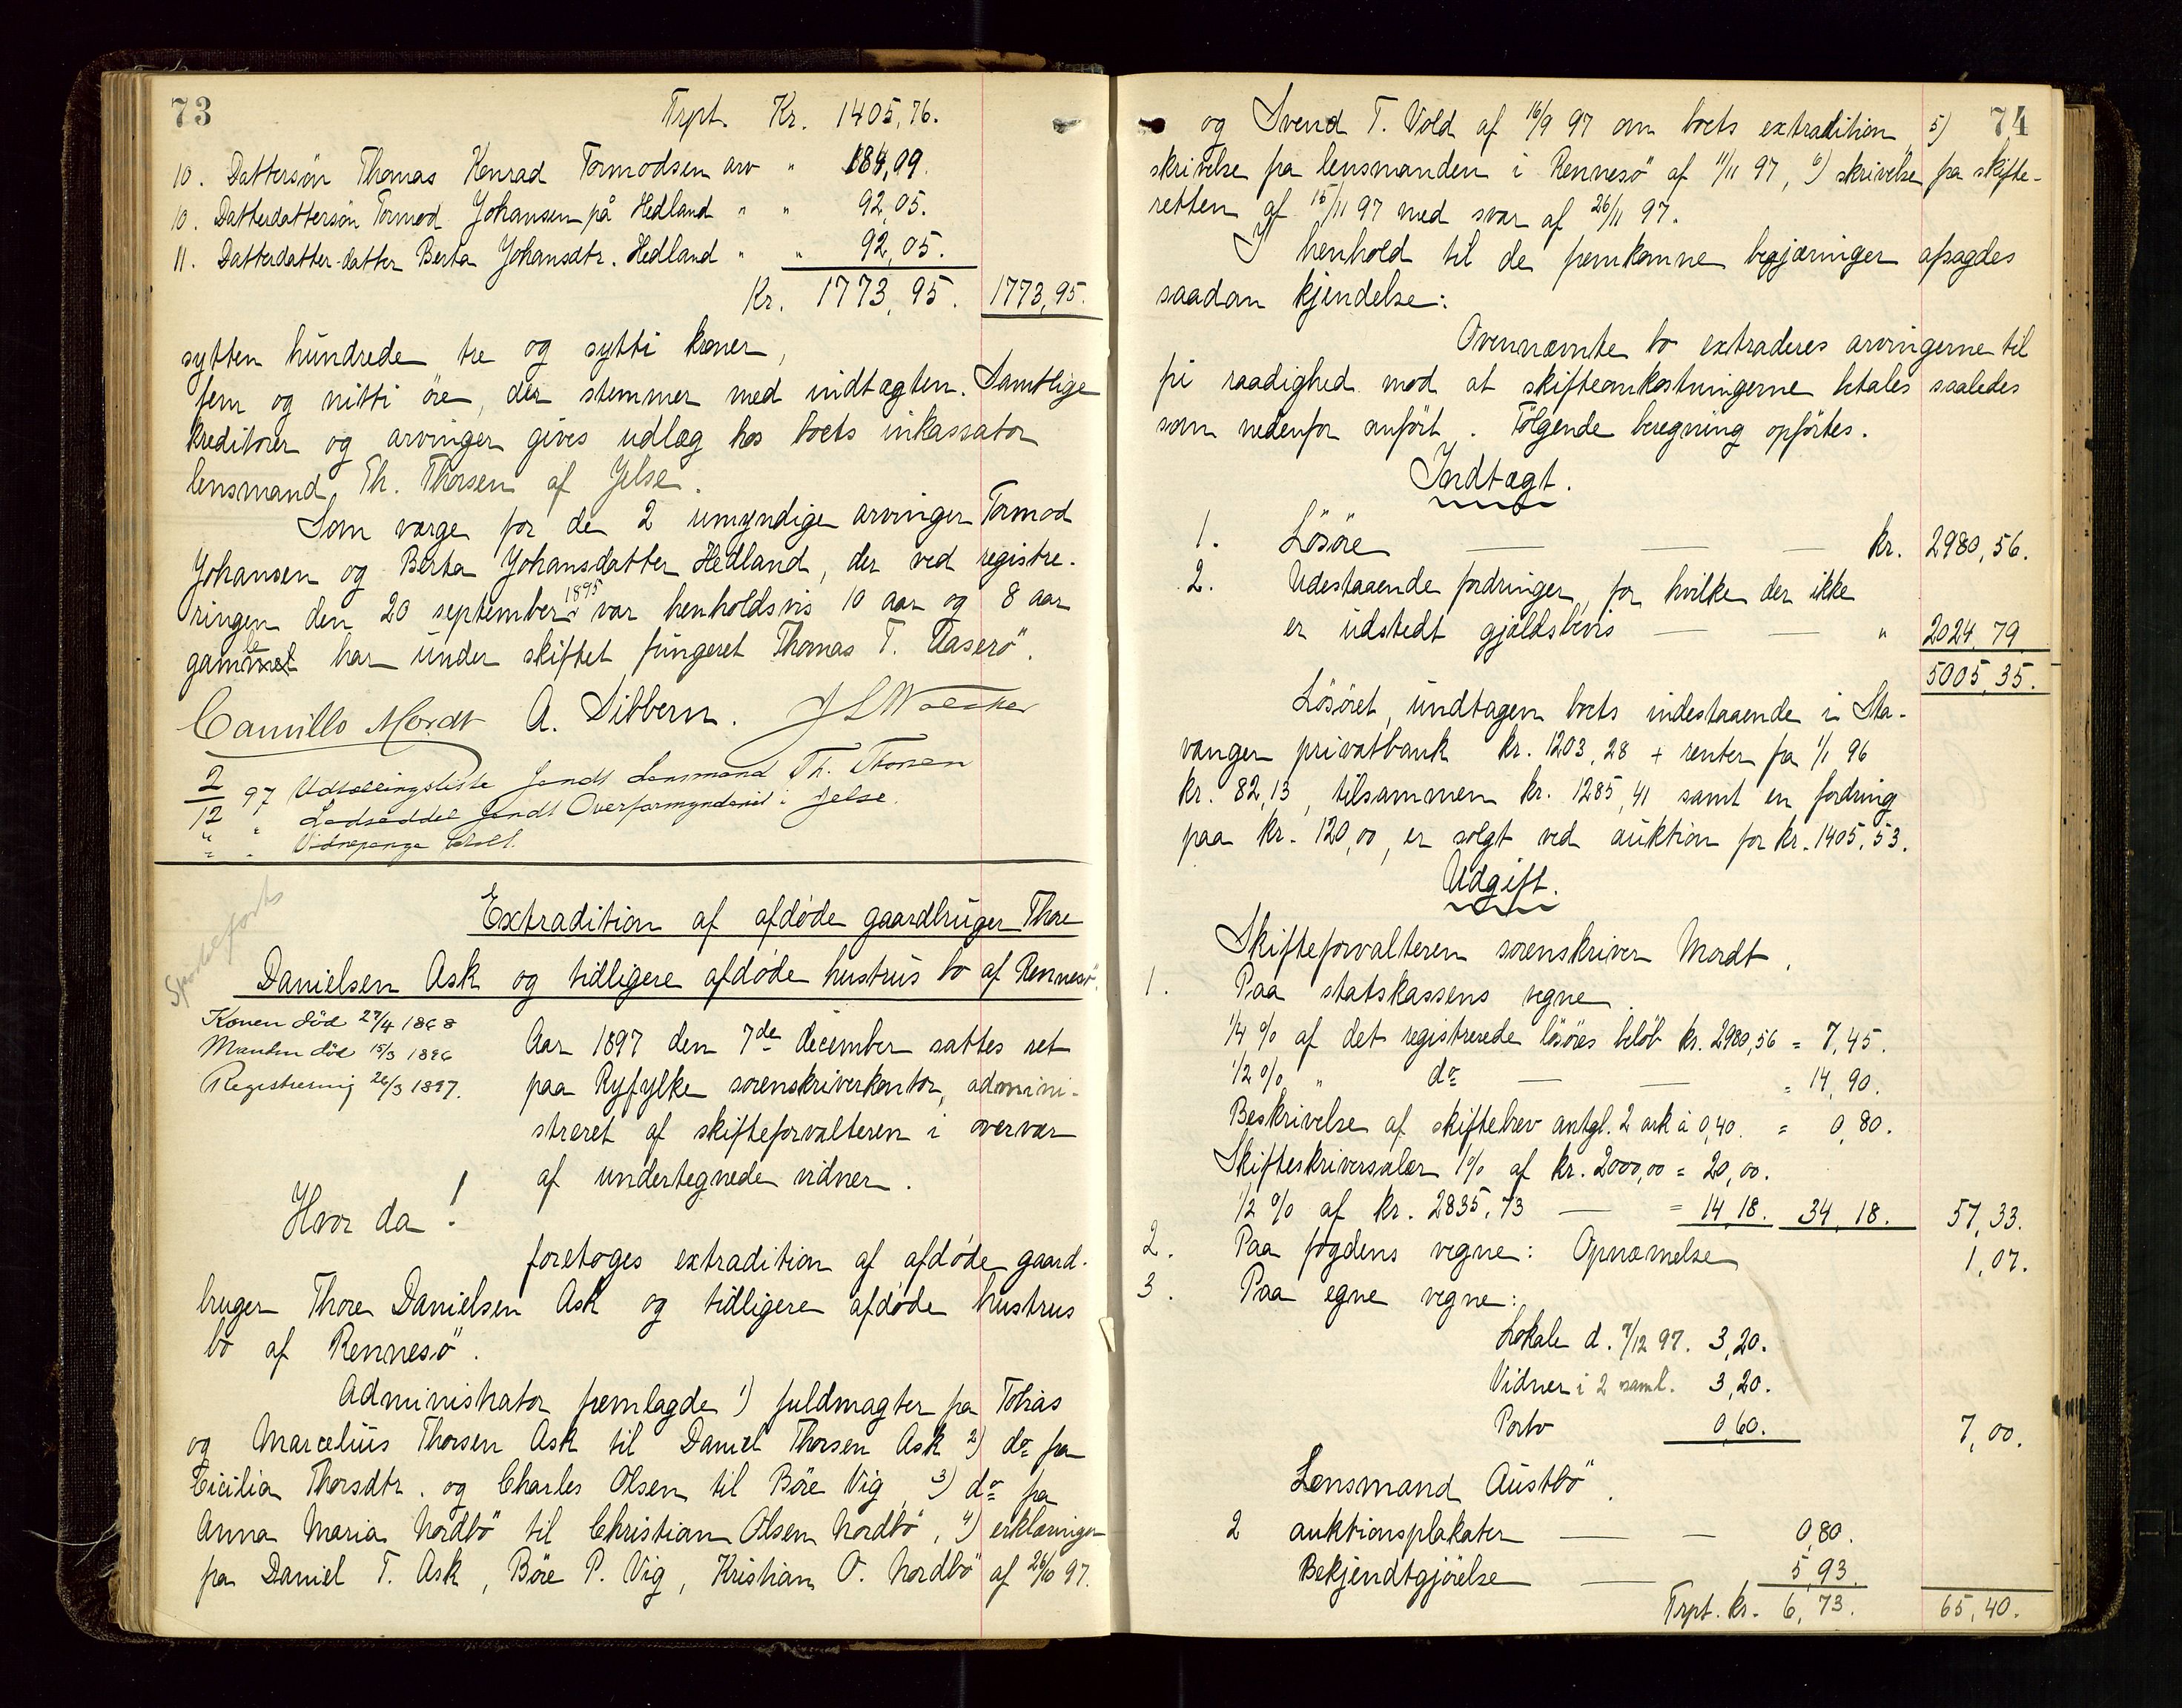 73
Trpt. Kr. 1405,76.
10. Dattersön Thomas Konrad Tormodsen arv " 184,09.
10. Datterdattersön Tormod Johansen på Hedland " " 92,05.
11. Datterdatter-datter Berta Johansdtr. Hedland " " 92,05.
Kr. 1773,95. 1773,95.
sytten hundrede tre og sytti kroner,
fem og nitti öre, der stemmer med indtægten. Samtlige
kreditorer og arvinger gives udlæg hos boets inkassator
lensmand Th. Thorsen af Jelse.
Som værge for de 2 umyndige arvinger Tormod
Johansen og Berta Johansdatter Hedland, der ved registre-
ringen den 20 september 1895 var henholdsvis 10 aar og 8 aar
gamle har under skiftet fungeret Thomas T. Aaserö.
Camillo Mordt A. Sibbern.
2/12 97 Udtællingsliste sendt Lensmand Th. Thorsen
" " Lodseddel sendt Overformynderiet i Jelse.
" " Vidnepenge betalt.
Extradition af afdøde gaardbruger Thore
Danielsen Ask og tidligere afdøde hustrus bo af Rennesö.
Konen död 27/4 1868
Manden död 15/3 1896
Registrering 26/3 1897.
Aar 1897 den 7de december sattes ret
paa Ryfylke sorenskriverkontor, admini-
streret af skifteforvalteren i overvær
af undertegnede vidner.
Hvor da!
foretoges extradition af afdøde gaard-
bruger Thore Danielsen Ask og tidligere afdøde hustrus
bo af Rennesö.
Administrator fremlagde 1) fuldmagter fra Tobias
og Marcelius Thorsen Ask til Daniel Thorsen Ask 2) do fra
Cicilia Thorsdtr. og Charles Olsen til Böre Vig, 3) do fra
Anna Maria Nordbö til Christian Olsen Nordbö, 4) erklæringer
fra Daniel T. Ask, Böre P. Vig, Kristian O. Nordbö af 26/10 97.
74
og Svend T. Vold af 16/9 97 om boets extradition 5)
skrivelse fra lensmanden i Rennesö af 11/11 97, 6) skrivelse fra skifte-
retten af 15/11 97 med svar af 26/11 97.
I henhold til de fremkomne begjæringer afsagdes
saadan kjendelse:
Ovennævnte bo extraderes arvingerne til
fri raadighed mod at skifteomkostningerne betales saaledes
som nedenfor anfört. Fölgende beregning opförtes.
Indtægt.
1. Lösöre kr. 2980,56.
2. Udestaaende fordringer, for hvilke der ikke
er udstedt gjældsbevis " 2024,79
5005,35.
Lösöret, undtagen boets indestaaende i Sta-
vanger privatbank kr. 1203,28 + renter fra 1/1 96
kr. 82,13, tilsammen kr. 1285,41 samt en fordring
paa kr. 120,00, er solgt ved auktion for kr. 1405,53.
Udgift.
Skifteforvalteren sorenskriver Mordt.
1. Paa statskassens vegne
1/4 % af det registrerede lösöres belöb kr. 2980,56 = 7,45.
1/2 % " do = 14,90.
Beskrivelse af skiftebrev antgl. 2 ark à 0,40. = 0,80.
Skifteskriversalær 1% af kr. 2000,00 = 20,00.
1/2 % af kr. 2835,73 = 14,18. 34,18. 57,33.
2. Paa fogdens vegne: Opnævnelse 1,07.
3. Paa egne vegne:
Lokale d. 7/12 97. 3,20.
Vidner i 2 saml. 3,20.
Porto 0,60. 7,00.
Lensmand Austbö.
2 auktionsplakater 0,80.
Bekjendtgjörelse 5,93.
Trpt. kr. 6,73. 65,40.